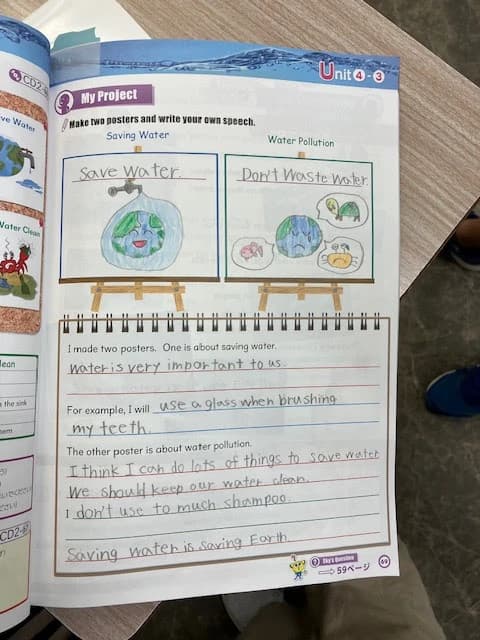 CD2-
Unit 4-3
My Project
Make two posters and write your own speech.
Saving Water
Water Pollution
Save Water.
Don't Waste Water.
I made two posters. One is about saving water.
Water is very important to us.
For example, I will use a glass when brushing
my teeth.
The other poster is about water pollution.
I think I can do lots of things to save water
We should keep our water clean.
I don't use to much shampoo.
Saving water is saving Earth
Sky's Question
59ページ
69
ve Water
Water Clean
lean
n the sink
hem
CD2-67